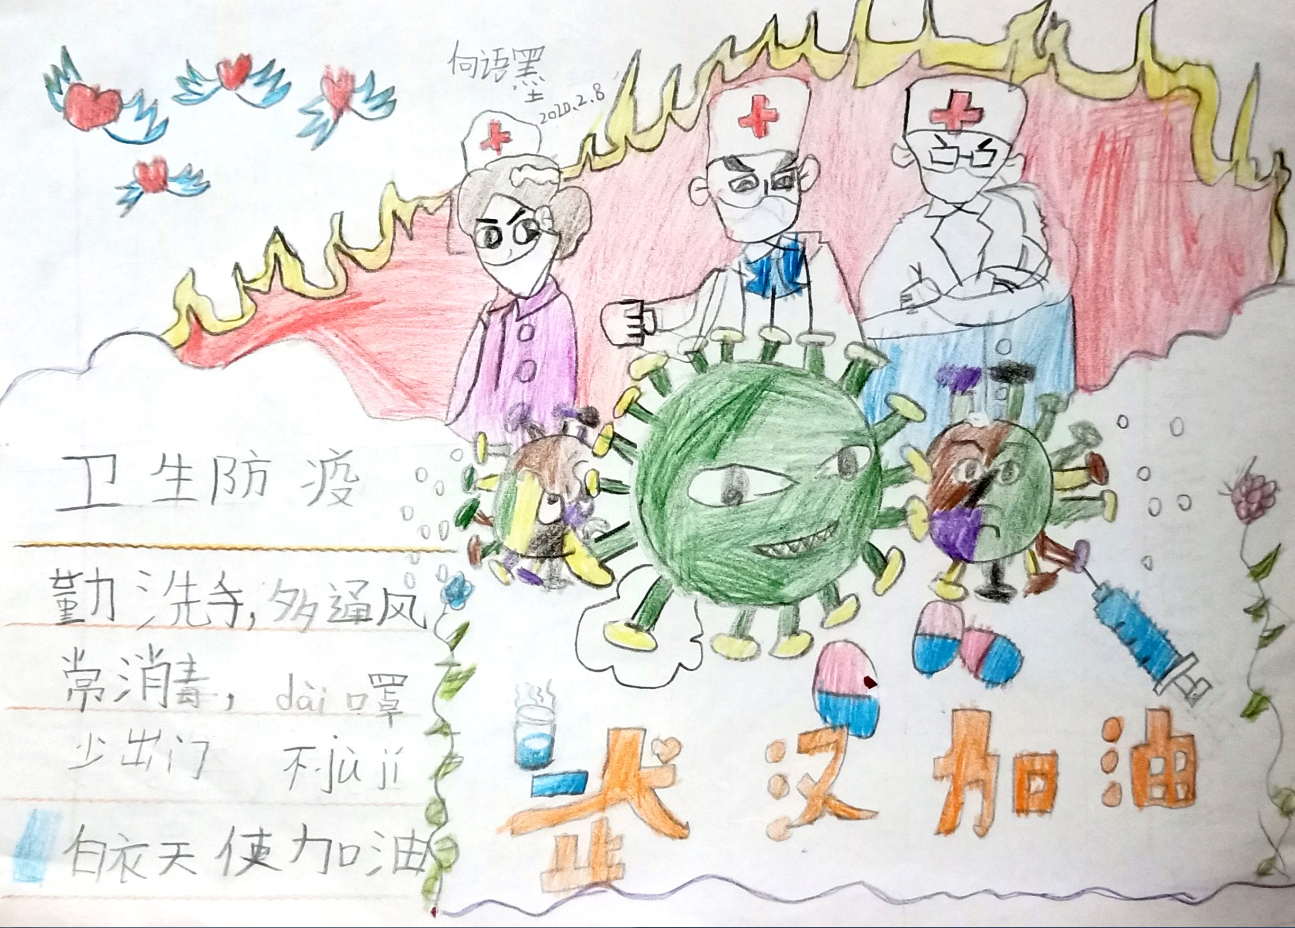 向语墨
2020.2.8
卫生防疫
勤洗手,多通风
常消毒,dài口罩
少出门 不jù jí
白衣天使加油
武汉加油